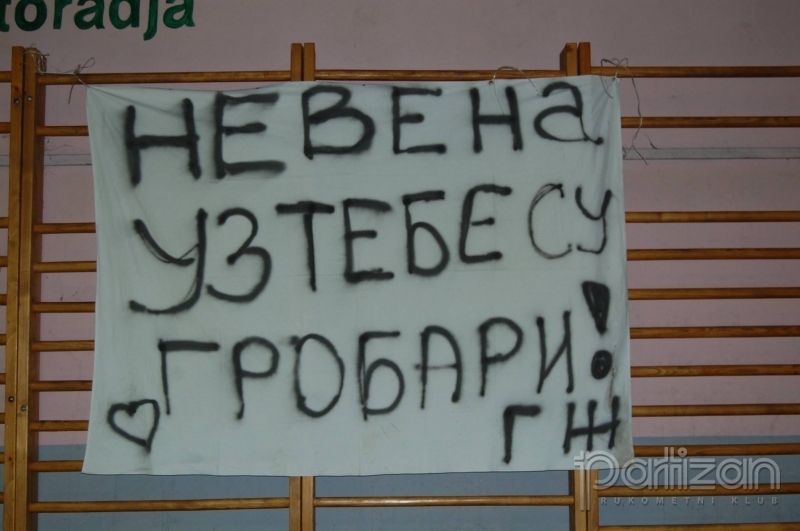 toradja
НЕВЕНа
УЗ ТЕБЕ СУ
ГРОБАРИ!
ГЖ
Partizan
RUKOMETNI KLUB